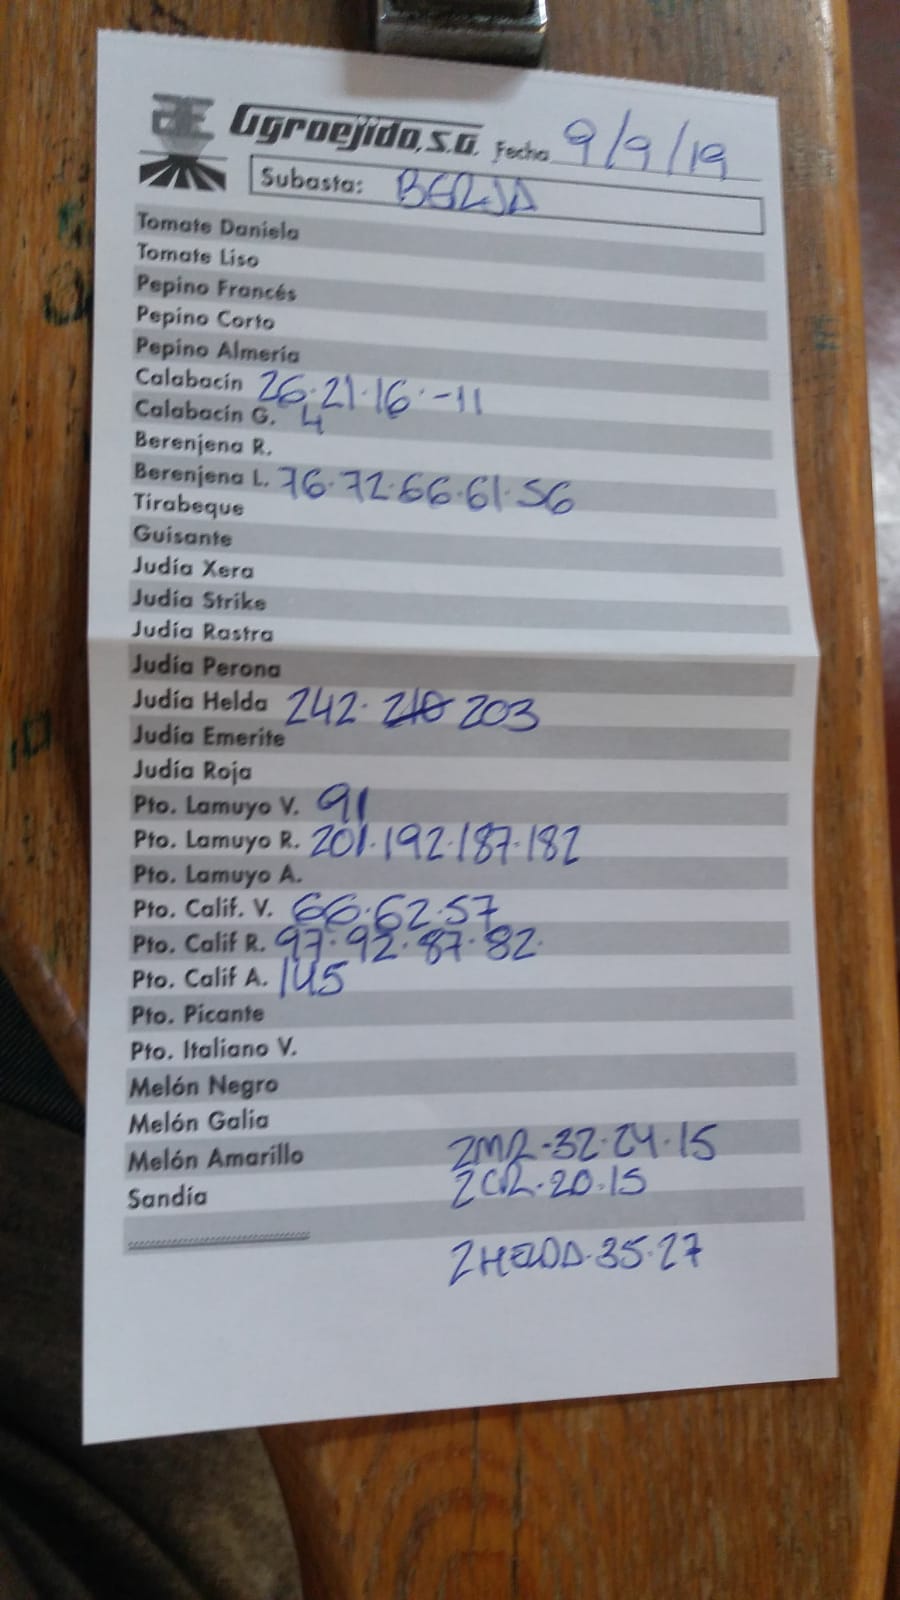 Agroejido, S.A. Fecha 9/9/19
Subasta: BERJA
Tomate Daniela
Tomate Liso
Pepino Francés
Pepino Corto
Pepino Almería
Calabacín 26·21·16·-11
Calabacín G. 4
Berenjena R.
Berenjena L. 76·72·66·61·56
Tirabeque
Guisante
Judía Xera
Judía Strike
Judía Rastra
Judía Perona
Judía Helda 242· 210 203
Judía Emerite
Judía Roja
Pto. Lamuyo V. 91
Pto. Lamuyo R. 201·192·187·182
Pto. Lamuyo A.
Pto. Calif. V. 66·62·57
Pto. Calif R. 97·92·87·82·
Pto. Calif A. 145
Pto. Picante
Pto. Italiano V.
Melón Negro
Melón Galia
Melón Amarillo 2MR-32·24·15
Sandía 2CR·20·15
2HELDA·35·27